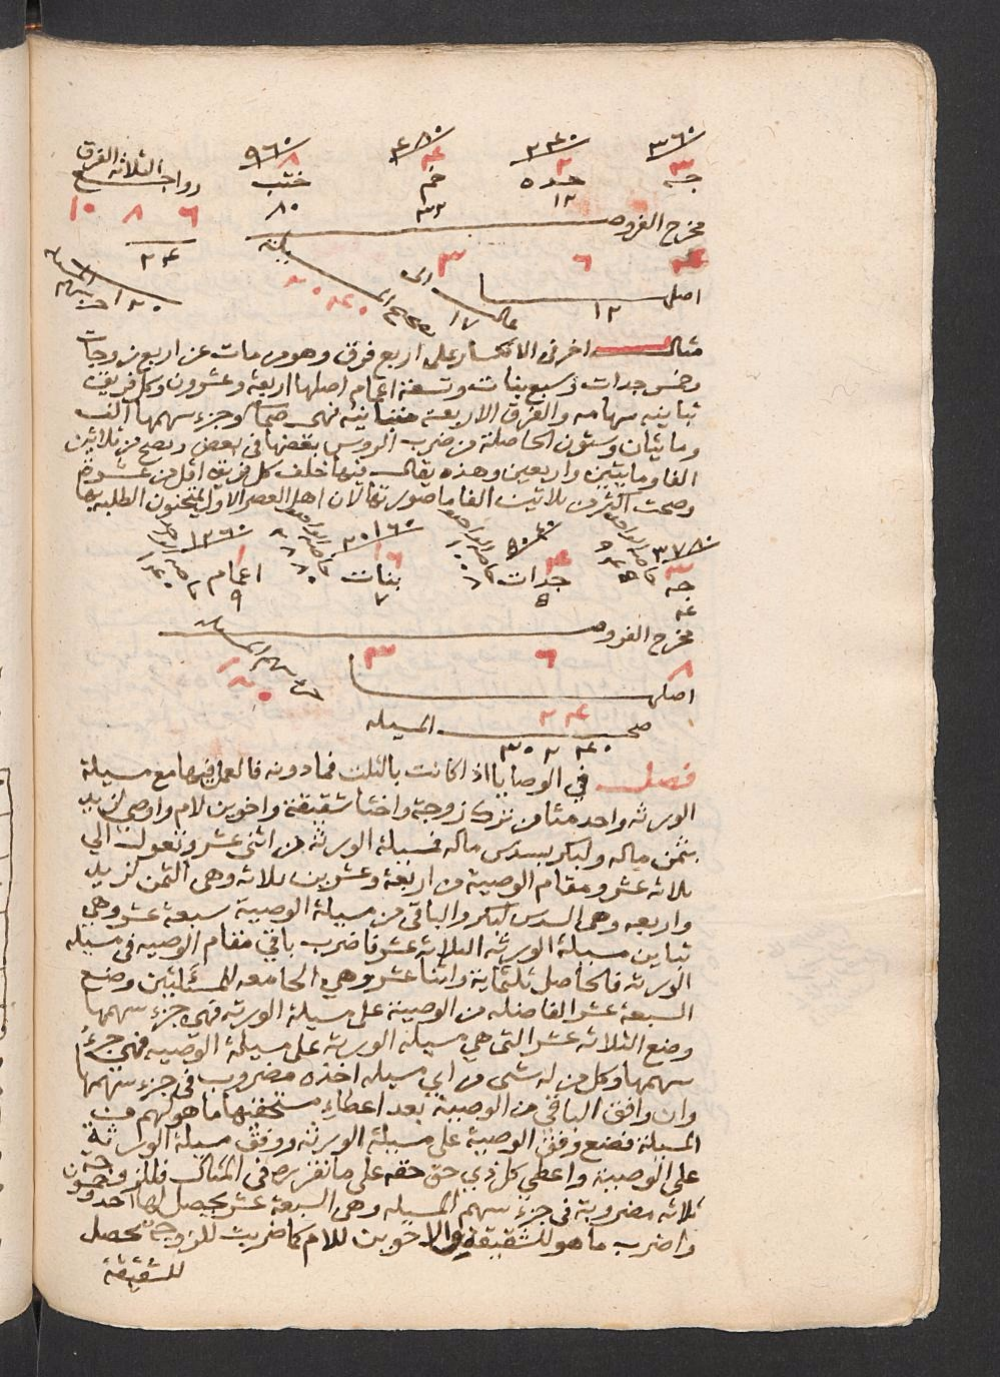 ٣٦٠ ٢٤٠ ٤٨٠ ٩٦٠
٣ ٢ ٤ ٨ الثلاثة الفرق
جه جده خم ختب رواجع
١٢ ٣٢ ٨٠ ٦ ٨ ١٠
مخرج الفروض
٢٤
٤ ٦ ٣
اصلها ١٢ عالت الى ١٧
مثال اخر فى الانكسار على اربع فرق وهو من مات عن اربع زوجات
وخمس جدات وسبع بنات وتسعة اعمام اصلها اربعة وعشرون وكل فريق
تباينه سهامه والفرق الاربعة متباينة فهى صما وجزء سهمها الف
ومايتان وستون الحاصلة من ضرب الروس بعضها فى بعض وتصح من ثلاثين
الفا ومايتين واربعين وهذه يقال فيها خلف كل فريق اقل من عشرة
وصحت اكثر من ثلاثين الفا ما صورتها لان اهل العصر الاول يمتحنون الطلبة بها
٣٧٨٠ ٥٠٤٠ ٢٠١٦٠ ١٢٦٠
٣ ٤ ١٦ ١
جه جدات بنات اعمام
٤ ٥ ٧ ٩
مخرج الفروض
٨ ٦ ٣
اصلها ٢٤
صحت المسيله
٣٠٢٤٠
فصل في الوصايا اذا كانت بالثلث فما دونه فالعمل فيها مع مسيلة
الورثه واحد مثا من ترك زوجة واختا شقيقة واخوين لام واوصى لزيد
بثمن ماله ولبكر بسدس ماله فمسيلة الورثة من اثنى عشر وتعول الي
ثلاثة عشر ومقام الوصية من اربعة وعشرين ثلاثه وهى الثمن لزيد
واربعه وهى السدس لبكر والباقى من مسيلة الوصية سبعة عشر وهى
تباين مسيلة الورثه الثلاثة عشر فاضرب باقى مقام الوصيه فى مسيله
الورثه فالحاصل ثلثماية واثنا عشر وهي الجامعه للمسئلتين وضع
السبعة عشر الفاضله من الوصية على مسيلة الورثه فهى جزء سهمها
وضع الثلاثه عشر التى هي مسيلة الورثه على مسيلة الوصيه فهى جزء
سهمها وكل من له شى من اي مسيله اخذه مضروب فى جزء سهمها
وان وافق الباقي من الوصية بعد اعطاء مستحقيها ما هو لهم من
المسيلة فضع وفق الوصية على مسيلة الورثه ووفق مسيلة الوراثة
على الوصية واعطي كل ذي حق حقه على ما تقرر فى المثال فللزوجة
ثلاثه مضروبة فى جزء سهم المسيله وهى السبعة عشر يحصل لها احد وخمسون
واضرب ما هو للشقيقة والاخوين للام كما ضربت للزوجة يحصل
للشقيقة